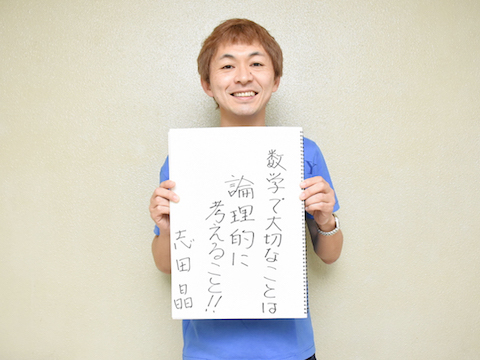 数学で大切なことは
論理的に
考えること!!
志田晶